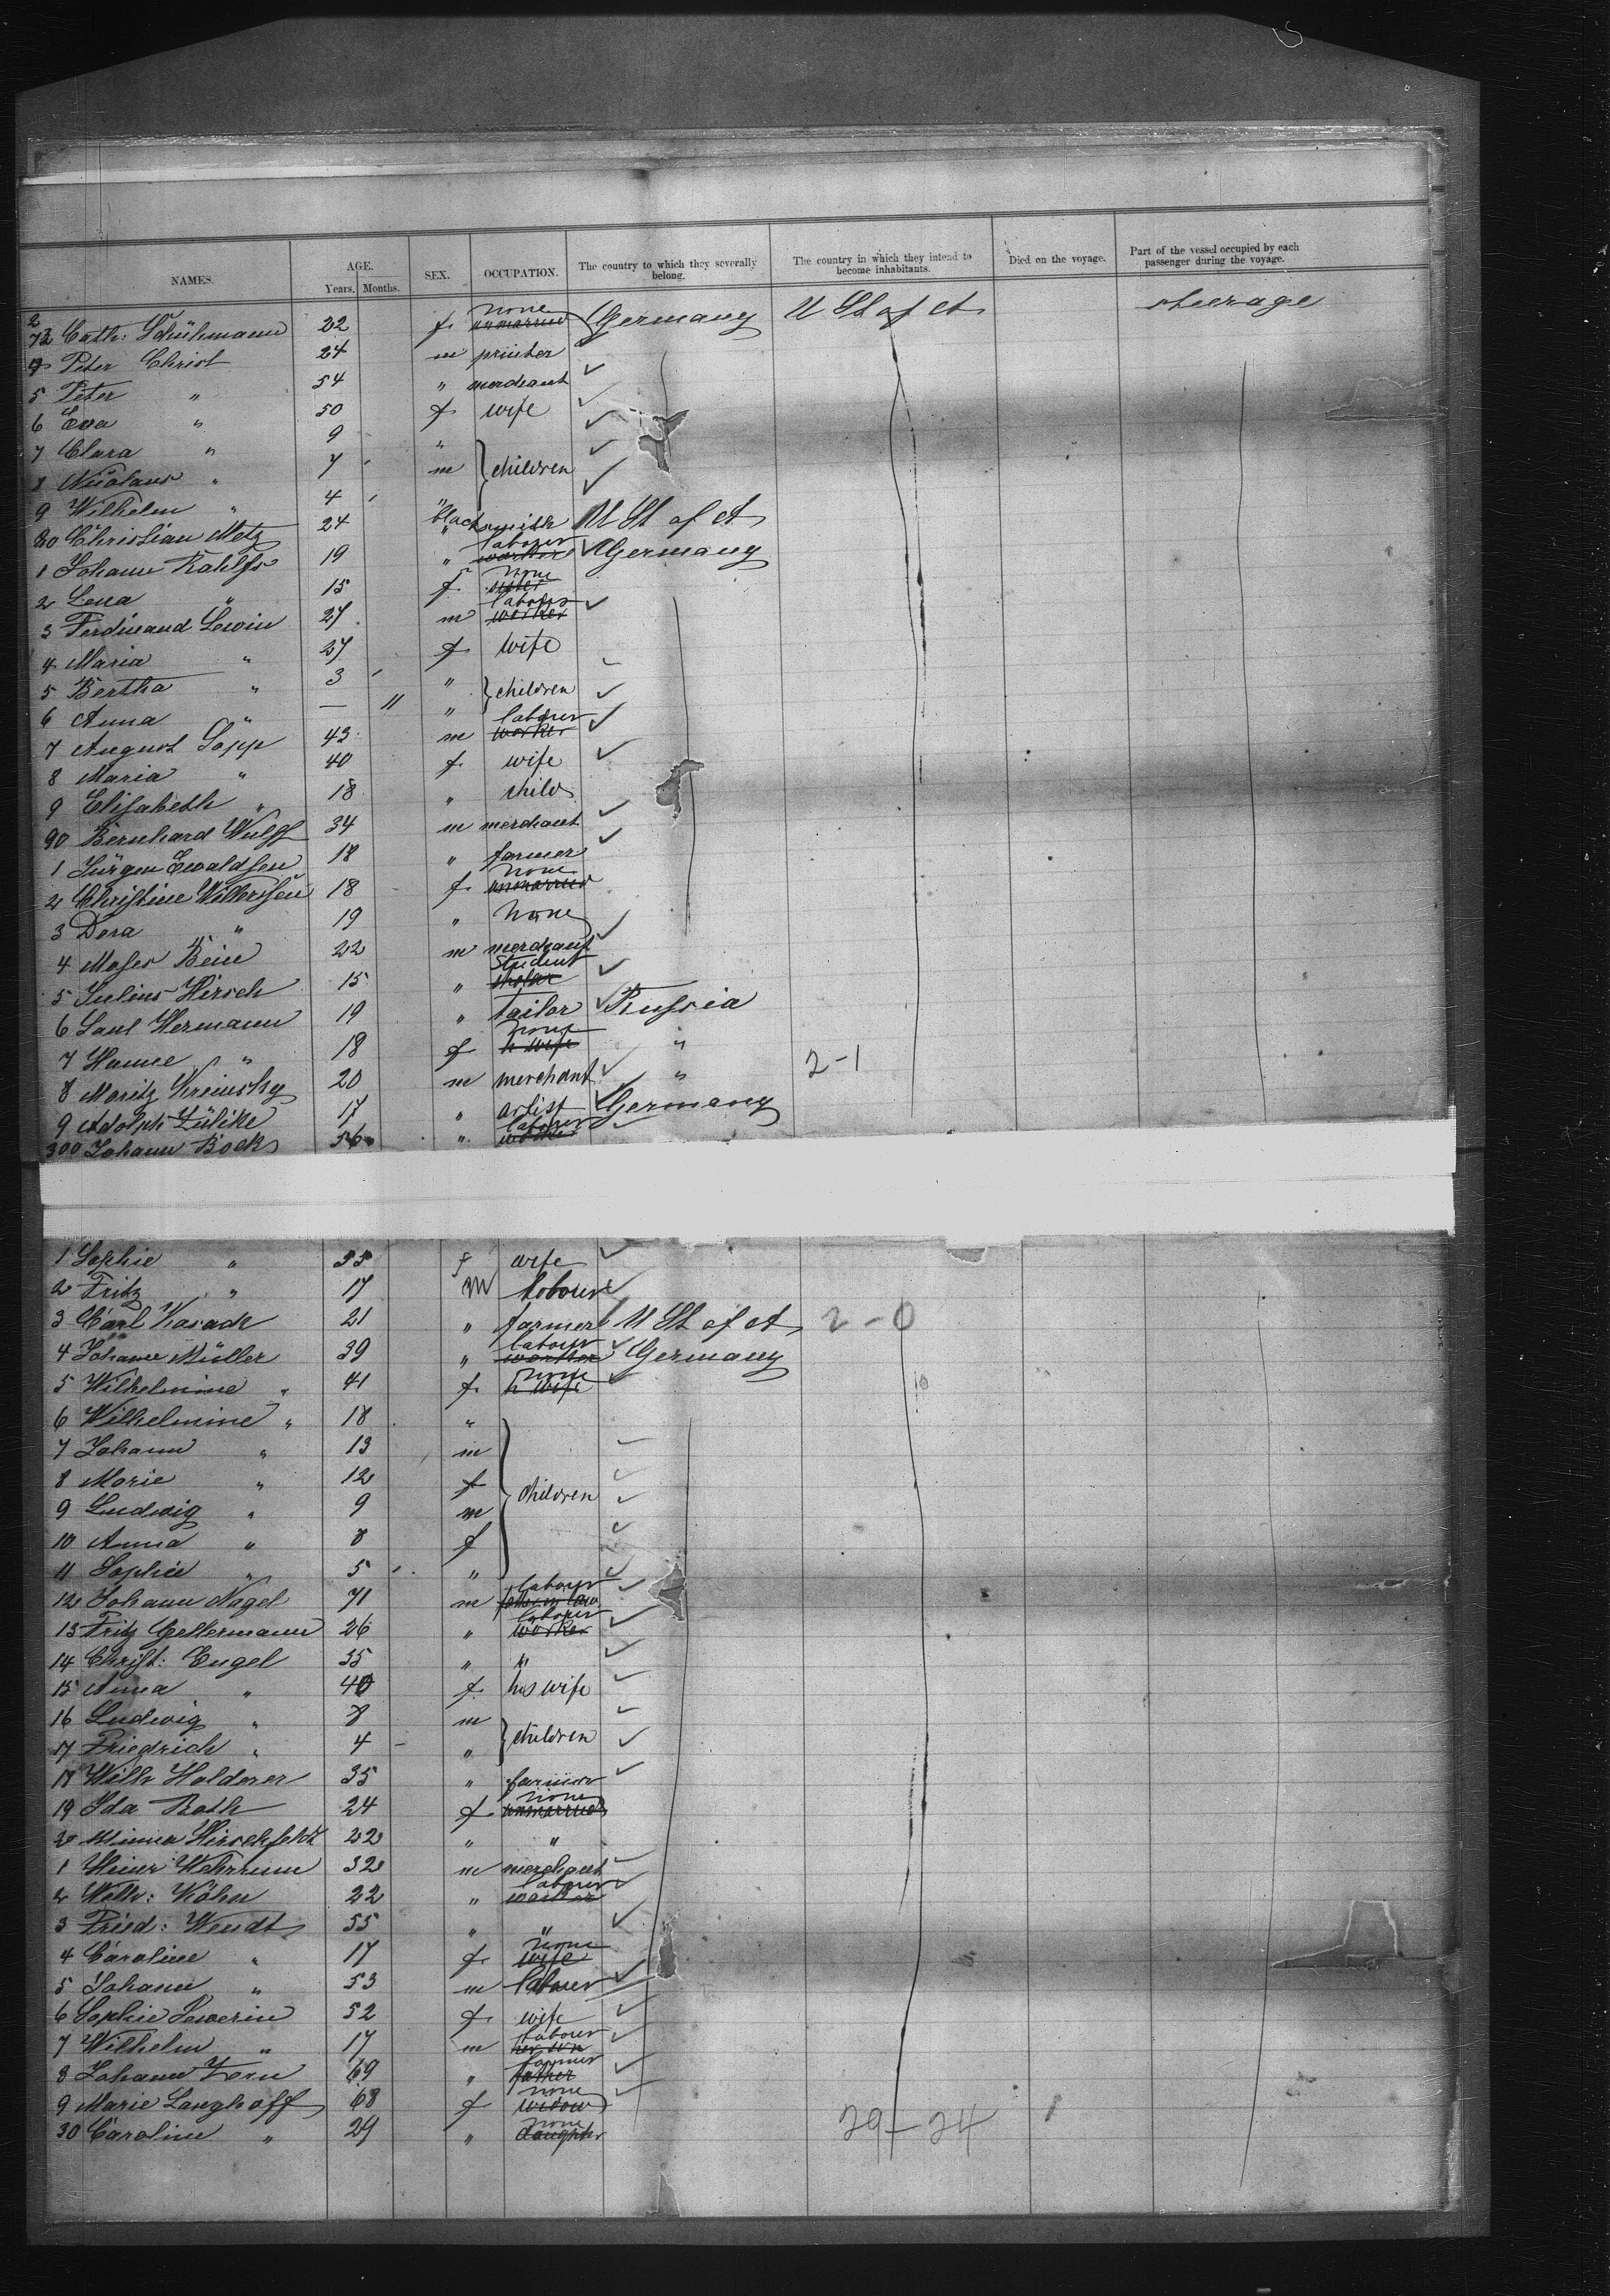 NAMES. AGE. Years. Months. SEX. OCCUPATION. The country to which they severally belong. The country in which they intend to become inhabitants. Died on the voyage. Part of the vessel occupied by each passenger during the voyage.
2
73 Cath: Schühmann 22 f. none unmarried Germany U St of A steerage
4 Peter Christ 24 m printer
5 Peter " 54 " merchant
6 Eva " 50 f. wife
7 Clara " 9 "
8 Nicolaus " 7 m children
9 Wilhelm " 4 "
80 Christian Metz 24 " blacksmith U St of A
1 Johann Rahlfs 19 " labourer worker Germany
2 Lena " 15 f. none sister
3 Ferdinand Lewin 27 m labourer worker
4 Maria " 27 f. wife
5 Bertha " 3 " children
6 Anna " — 11 "
7 August Sapp 43 m labourer worker
8 Maria " 40 f. wife
9 Elisabeth " 18 " child
90 Bernhard Wulff 34 m merchant
1 Jürgen Ewaldsen 18 " farmer
2 Christine 18 f. none unmarried
3 Dora " 19 " none
4 Moses Bein 22 m merchant
5 Julius Hirsch 15 " student scholar
6 Saul Hermann 19 " tailor Russia
7 Hanne " 18 f. none h wife "
8 Moritz Kreinsky 20 m merchant " 2-1
9 Adolph Zülike 17 " artist Germany
300 Johann Bock 56 " labourer worker
1 Sophie " 55 f wife
2 Fritz " 17 m labourer
3 Carl Kasack 21 " farmer U St of A 2-0
4 Johann Müller 39 " labourer worker Germany
5 Wilhelmine " 41 f. none h wife
6 Wilhelmine " 18 "
7 Johann " 13 m
8 Marie " 12 f
9 Ludwig " 9 m children
10 Anna " 8 f
11 Sophie " 5 "
12 Johann Nagel 71 m labourer father in law
13 Fritz Gellermann 26 " labourer worker
14 Christ: Engel 35 " "
15 Anna " 40 f. his wife
16 Ludwig " 8 m
17 Friedrich " 4 " children
18 Wilh Halderer 35 " farmer
19 Ida Roth 24 f. none unmarried
20 Minna Hirschfeldt 22 " "
1 Heinr Wehrum 32 m merchant
2 Wilh: Köhn 22 " labourer worker
3 Fried: Wendt 55 " "
4 Caroline " 17 f. none wife
5 Johann " 53 m labourer
6 Sophie Severin 52 f. wife
7 Wilhelm " 17 m labourer her son
8 Johann Zorn 69 " farmer father
9 Marie Langhoff 68 f none widow
30 Caroline " 29 " none daughter
29-24 1